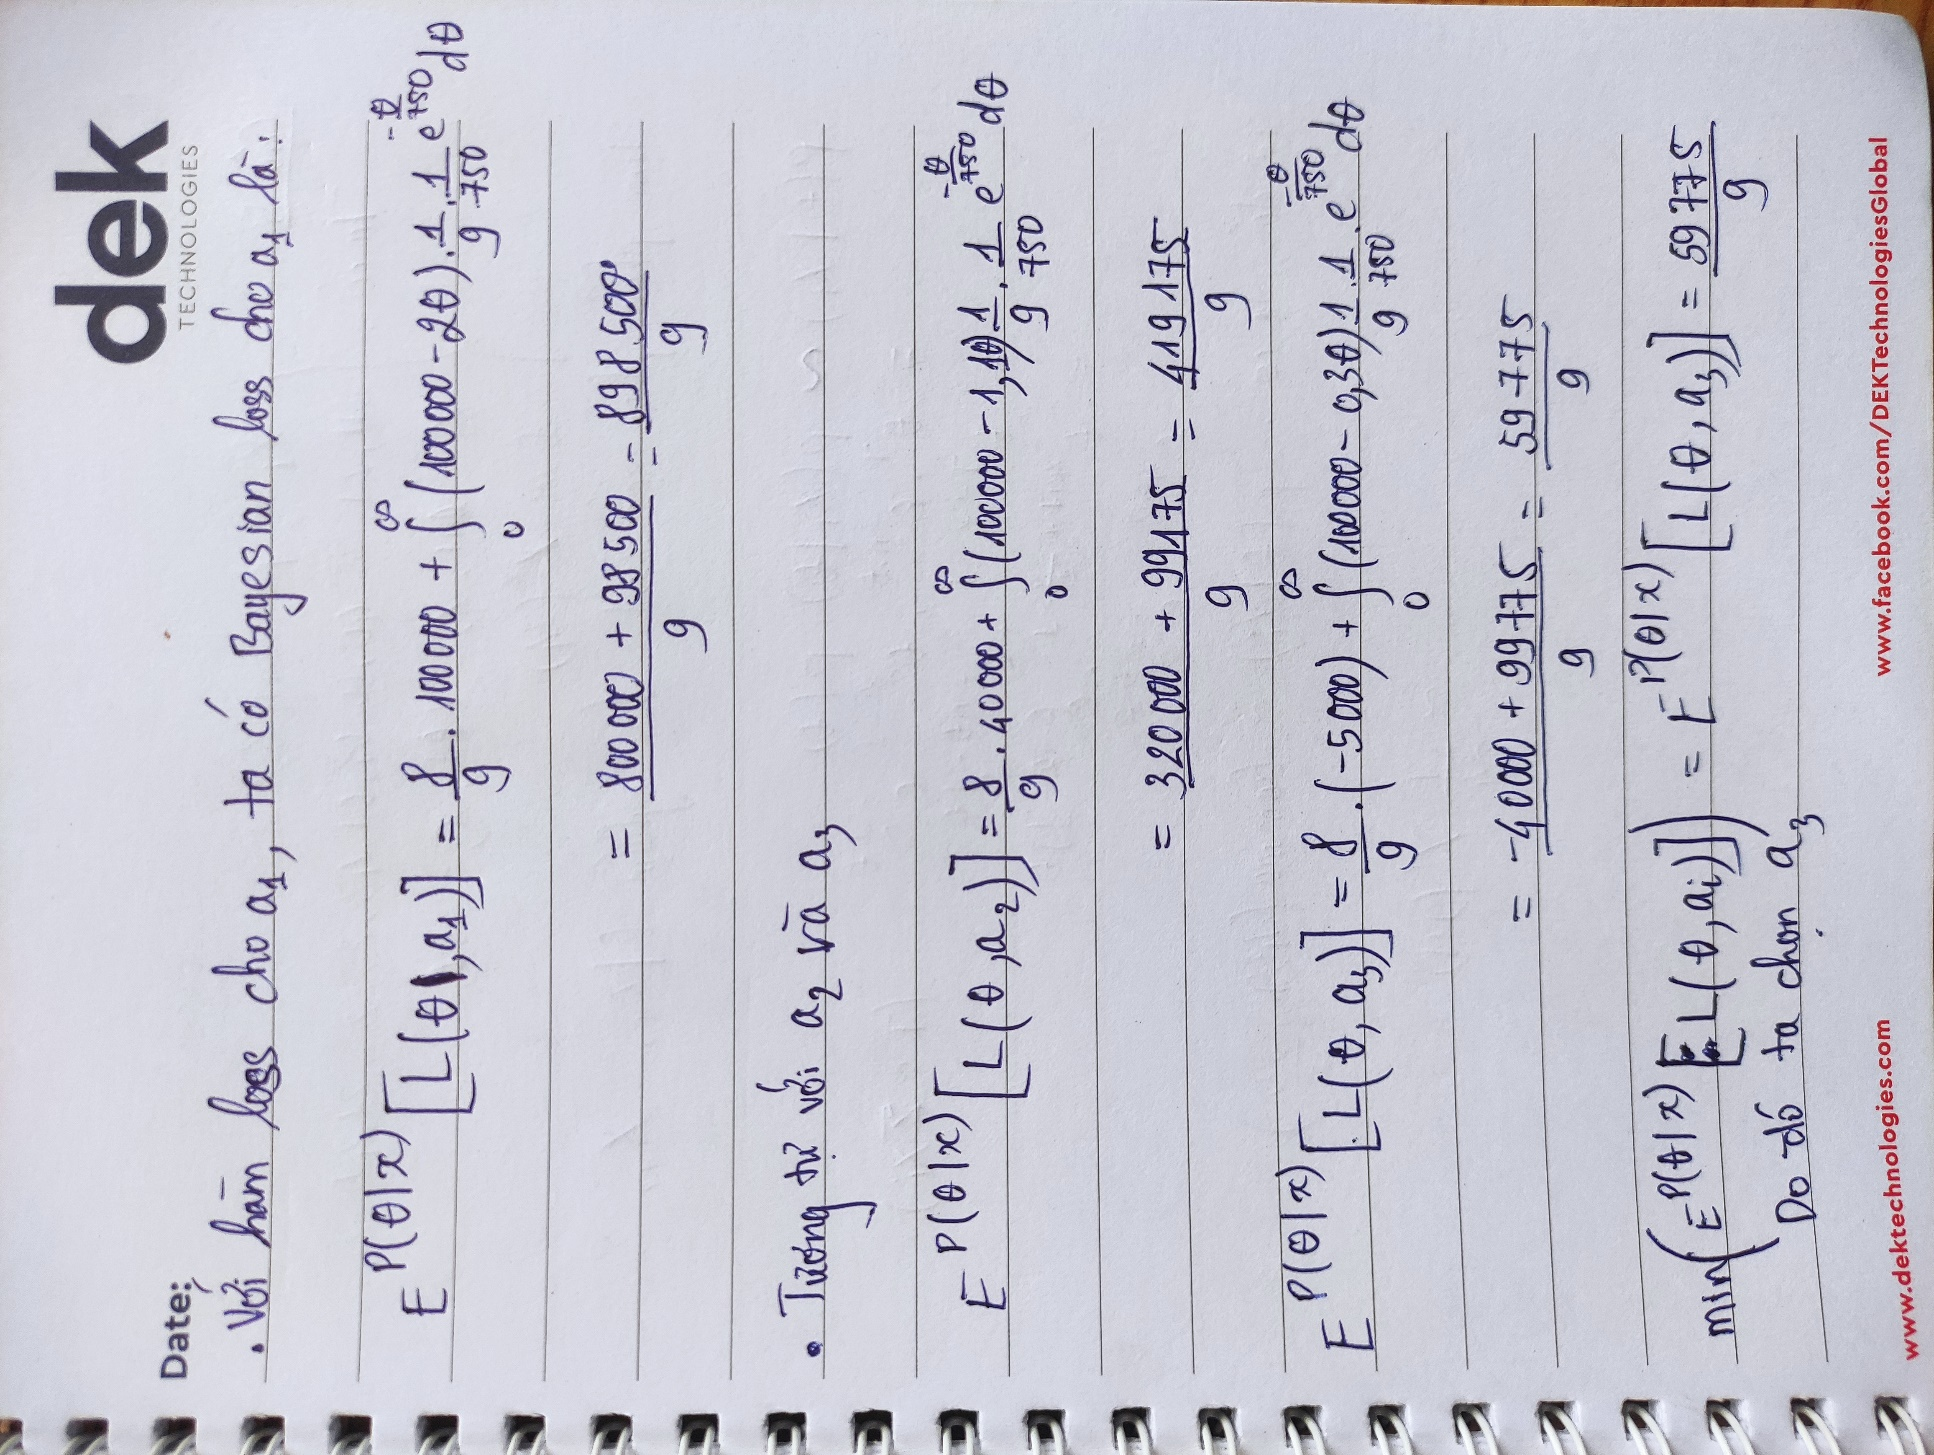 dek
TECHNOLOGIES
Date:
• Với hàm loss cho a₁, ta có Bayesian loss cho a₁ là:
E^{P(θ|x)} [L(θ, a₁)] = 8/9 . 100000 + ∫₀^∞ (100000 - 2θ) . 1/9 . 1/750 e^{-θ/750} dθ
= (800000 + 98500)/9 = 898500/9
• Tương tự với a₂ và a₃
E^{P(θ|x)} [L(θ, a₂)] = 8/9 . 40000 + ∫₀^∞ (100000 - 1,1θ) 1/9 . 1/750 e^{-θ/750} dθ
= (320000 + 99175)/9 = 419175/9
E^{P(θ|x)} [L(θ, a₃)] = 8/9 . (-5000) + ∫₀^∞ (100000 - 0,3θ) 1/9 . 1/750 . e^{-θ/750} dθ
= (-40000 + 99775)/9 = 59775/9
min(E^{P(θ|x)} [L(θ, aᵢ)]) = E^{P(θ|x)} [L(θ, a₃)] = 59775/9
Do đó ta chọn a₃
www.dektechnologies.com www.facebook.com/DEKTechnologiesGlobal